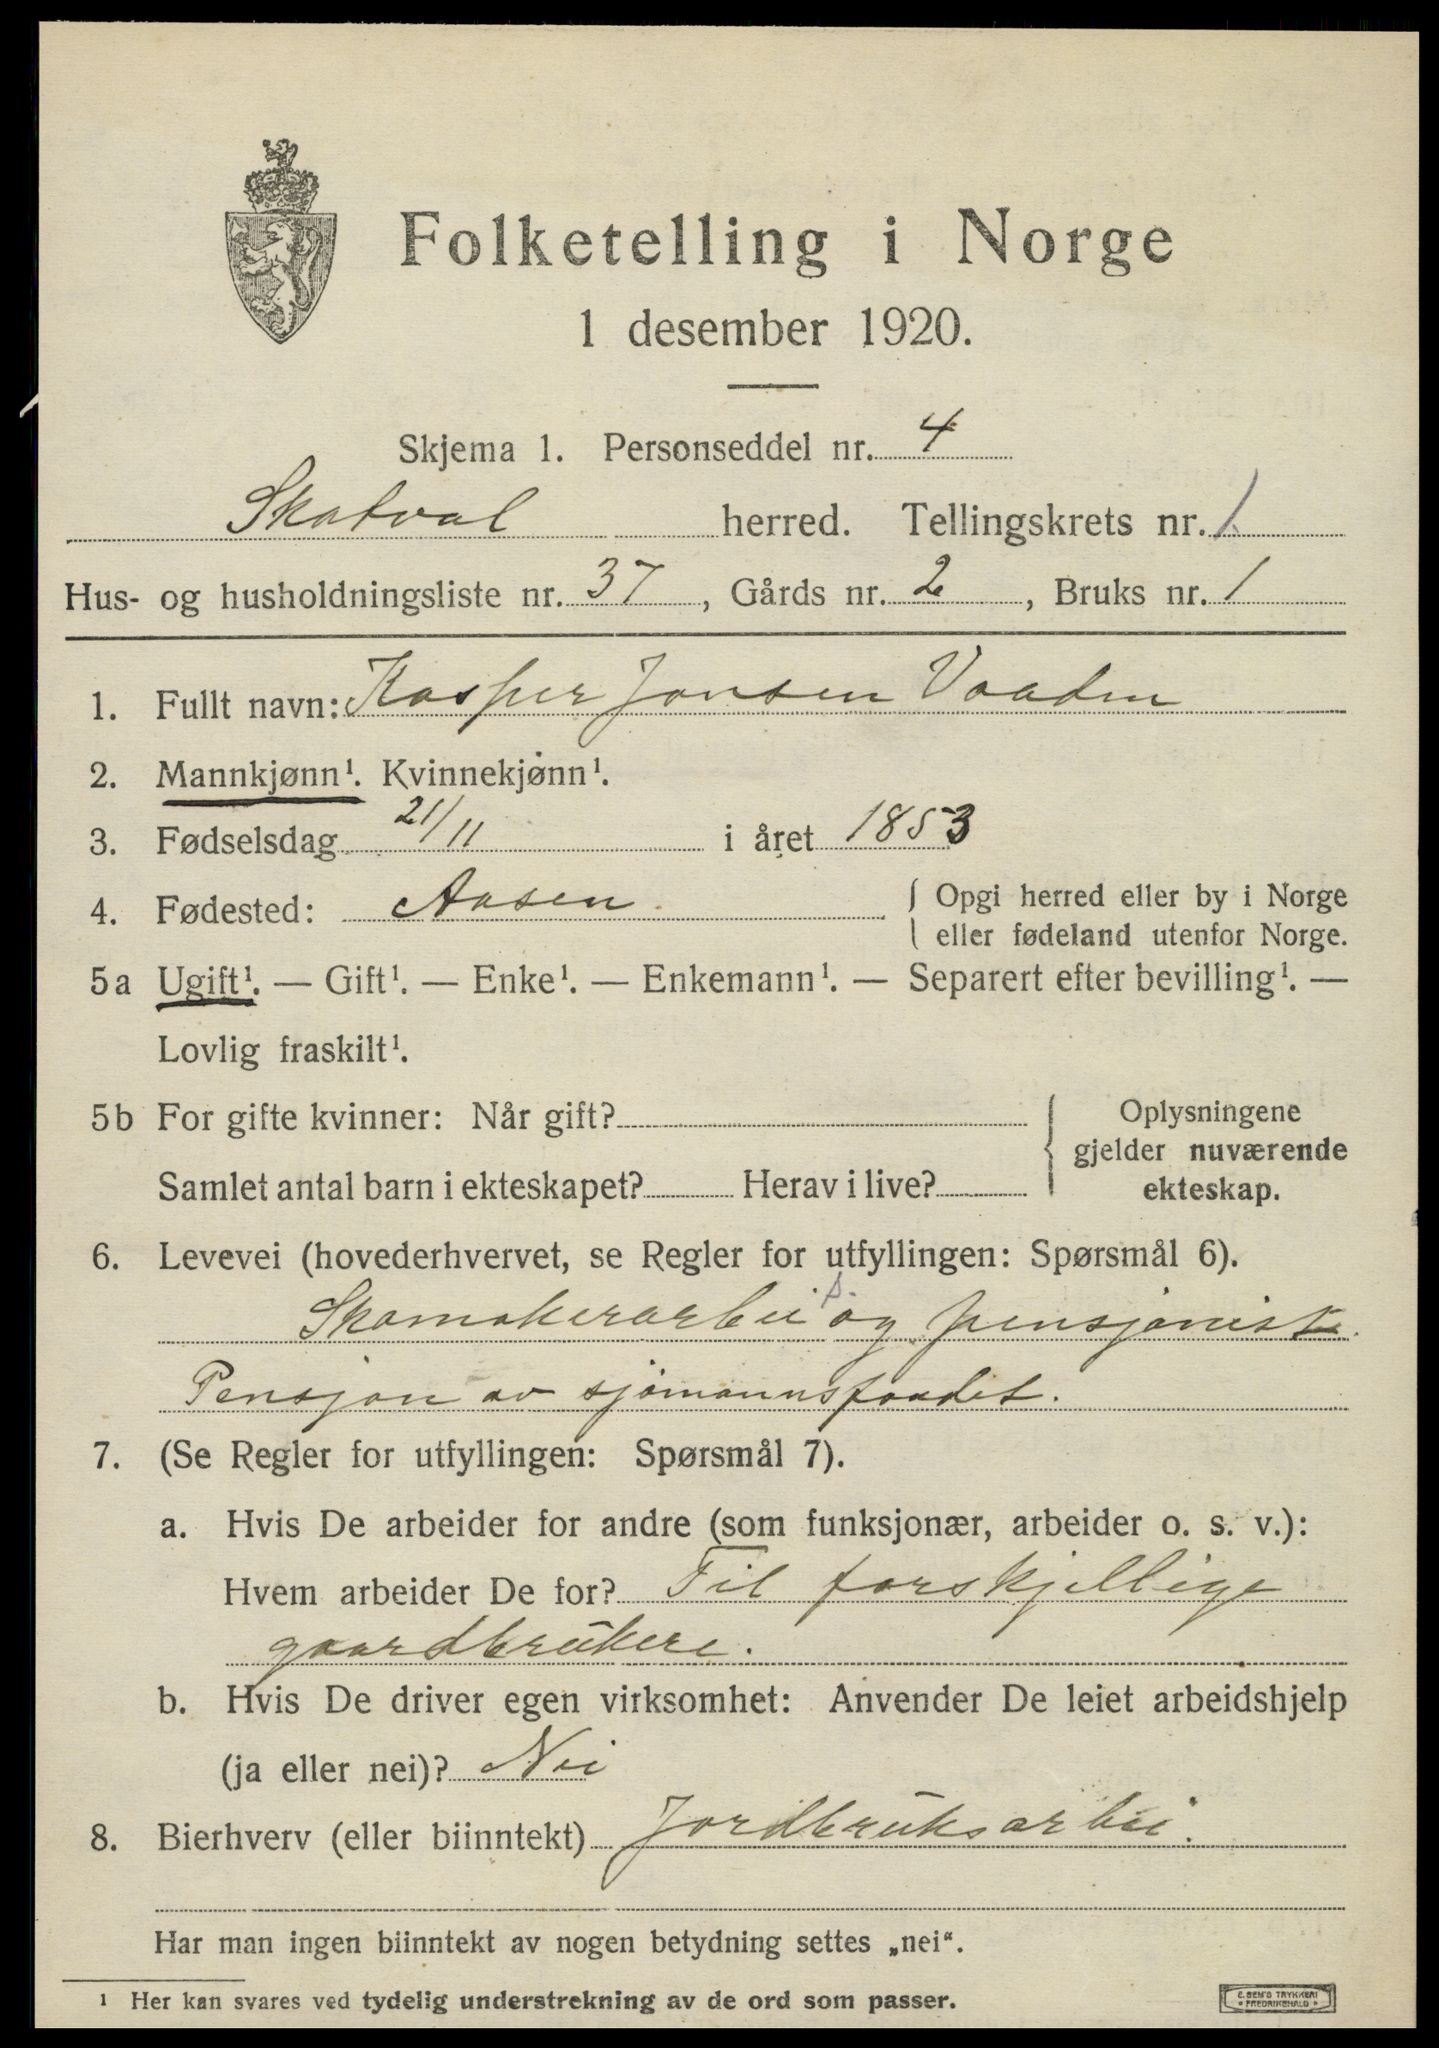 Folketelling i Norge
1 desember 1920.
Skjema 1. Personseddel nr. 4
Skatval herred. Tellingskrets nr. 1.
Hus- og husholdningsliste nr. 37, Gårds nr. 2, Bruks nr. 1
1. Fullt navn: Kasper Jonsen Vaaden
2. Mannkjønn¹. Kvinnekjønn¹.
3. Fødselsdag 21/11 i året 1853
4. Fødested: Aasen. { Opgi herred eller by i Norge
eller fødeland utenfor Norge.
5a Ugift¹. — Gift¹. — Enke¹. — Enkemann¹. — Separert efter bevilling¹. —
Lovlig fraskilt¹.
5b For gifte kvinner: Når gift? { Oplysningene
gjelder nuværende
Samlet antal barn i ekteskapet? Herav i live? ekteskap.
6. Levevei (hovederhvervet, se Regler for utfyllingen: Spørsmål 6).
Skomakerarbei s. og pensjonist.
Pensjon av sjömannsfondet.
7. (Se Regler for utfyllingen: Spørsmål 7).
a. Hvis De arbeider for andre (som funksjonær, arbeider o. s. v.):
Hvem arbeider De for? Til forskjellige
gaardbrukere.
b. Hvis De driver egen virksomhet: Anvender De leiet arbeidshjelp
(ja eller nei)? Nei
8. Bierhverv (eller biinntekt) Jordbruksarbei.
Har man ingen biinntekt av nogen betydning settes „nei“.
¹ Her kan svares ved tydelig understrekning av de ord som passer.
E. SEM'S TRYKKERI
* FREDRIKSHALD *